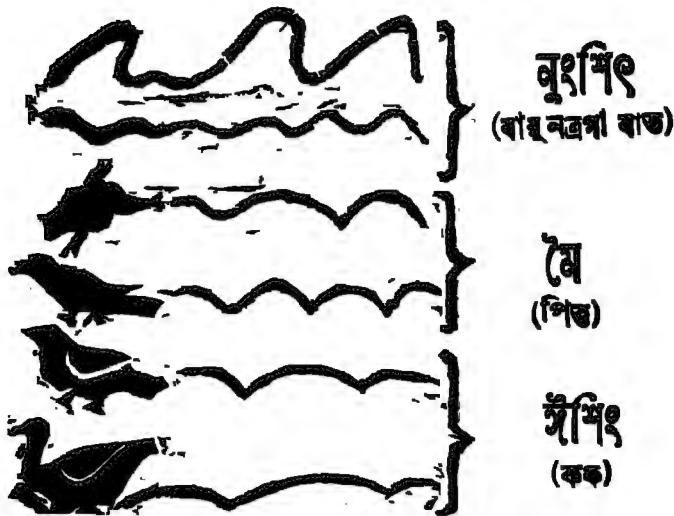 নুংশিৎ
(বায়ু নত্রগা বাত)
মৈ
(পিত্ত)
ঈশিং
(কফ)